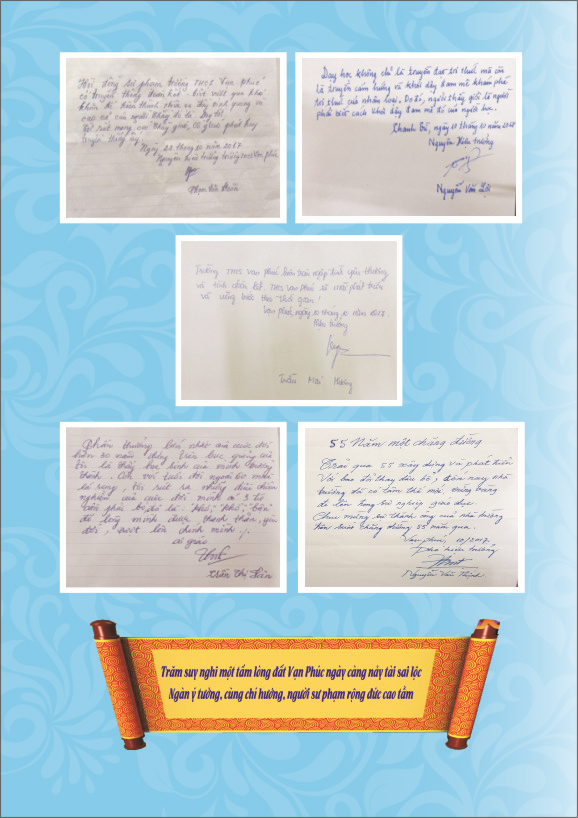 Hội đồng sư phạm trường THCS Vạn Phúc
có truyền thống đoàn kết, biết vượt qua khó
khăn để hoàn thành nhiệm vụ
Ngày 22 tháng 10 năm 2017
Nguyên hiệu trưởng trường THCS Vạn Phúc
Dạy học không chỉ là truyền đạt tri thức mà còn
là truyền cảm hứng và khơi dậy đam mê khám phá
tri thức của nhân loại. Do đó, người thầy giỏi là người
phải biết cách khơi dậy đam mê đó của người học.
Thanh Trì, ngày 10 tháng 10 năm 2017
Nguyên Hiệu trưởng
Nguyễn Văn Lợi
Trường THCS Vạn Phúc luôn tràn ngập tình yêu thương
và tình đoàn kết. THCS Vạn Phúc sẽ mãi phát triển
và vững bước theo thời gian!
Vạn Phúc, ngày 10 tháng 10 năm 2017
Hiệu trưởng
Trần Mai Hương
Phần thưởng lớn nhất của cuộc đời
hơn 30 năm đứng trên bục giảng của
tôi là thấy học sinh của mình trưởng
thành. Còn với tuổi đời ngoài 60
tôi rút ra những điều
nghiệm của cuộc đời mình là 3 từ
để lòng mình được thanh thản, yêu
đời, vượt lên chính mình
Cô giáo
Trần Thị
55 Năm một chặng đường
Trải qua 55 xây dựng và phát triển
Với bao đổi thay dâu bể, đến nay nhà
trường đã có tầm thế mới, vững vàng
đi lên trong sự nghiệp giáo dục
Chúc mừng sự thành công của nhà trường
trên bước chặng đường 55 năm qua.
Vạn phúc, 10/2017
Phó hiệu trưởng
Nguyễn Văn Thịnh
Trăm suy nghĩ một tấm lòng đất Vạn Phúc ngày càng nảy tài sai lộc
Ngàn ý tưởng, cùng chí hướng, người sư phạm rộng đức cao tầm